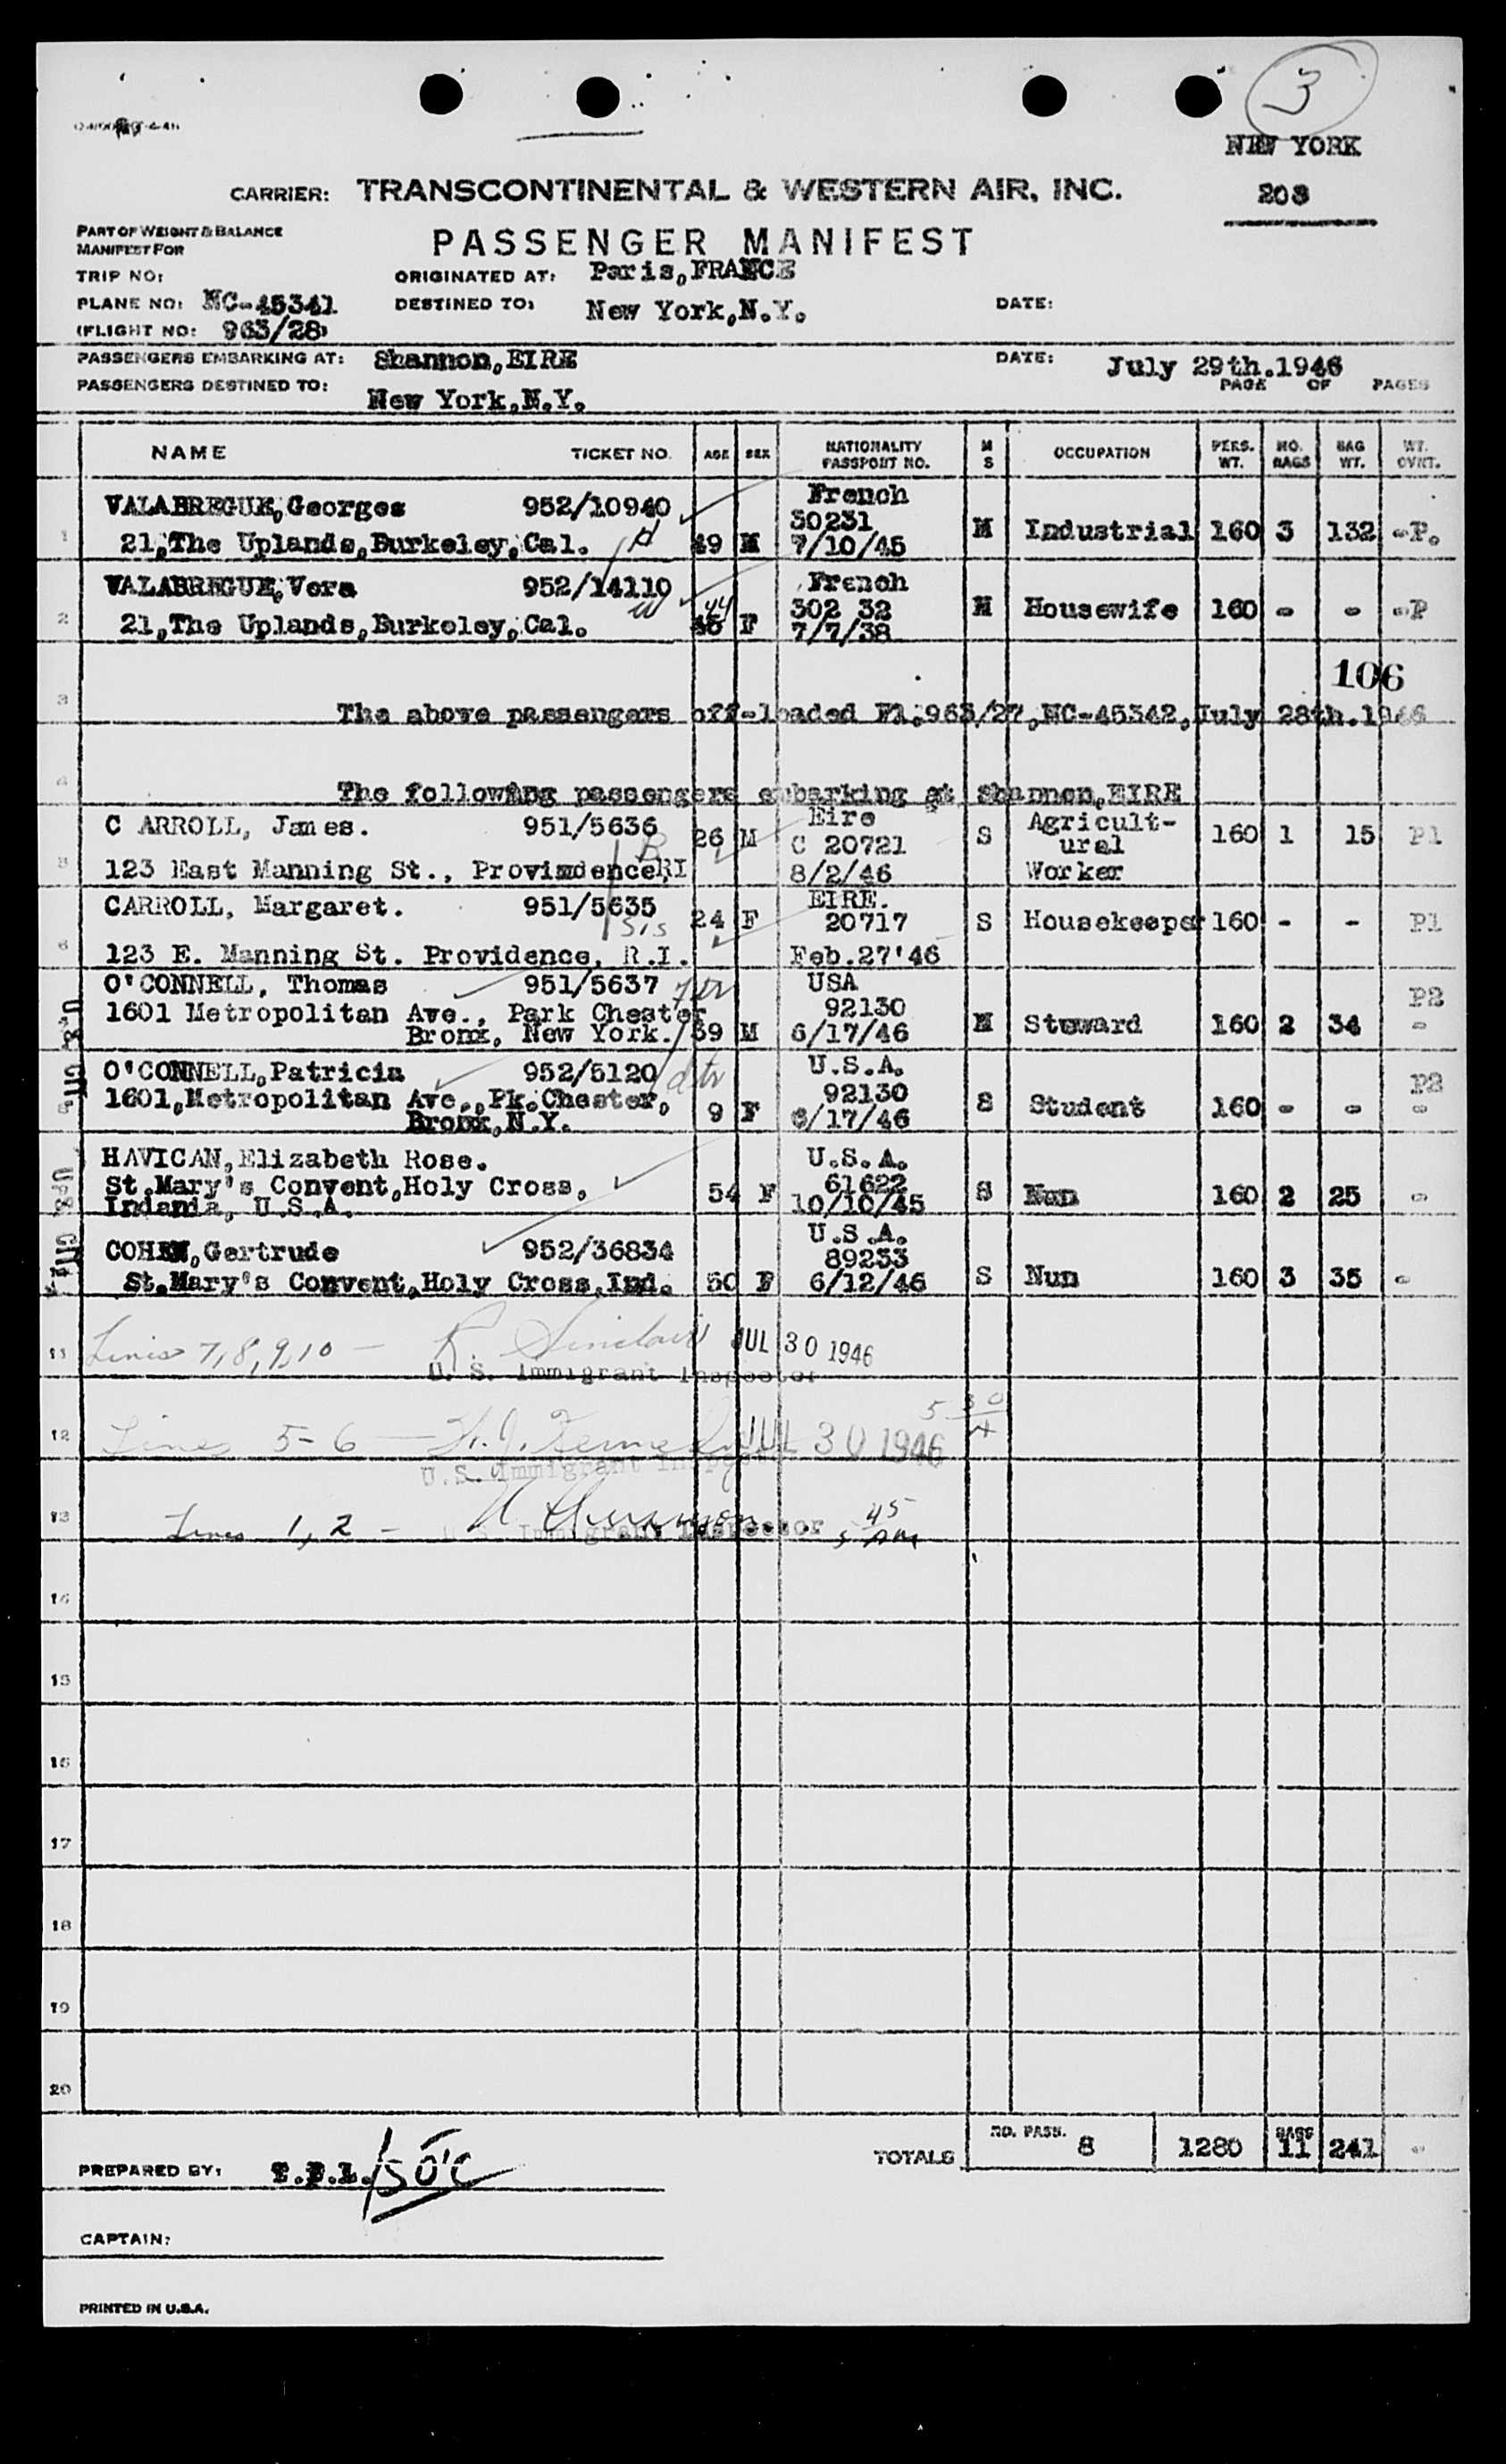 3
NEW YORK
CARRIER: TRANSCONTINENTAL & WESTERN AIR, INC.
208
PART OF WEIGHT & BALANCE
MANIFEST FOR
PASSENGER MANIFEST
TRIP NO:
ORIGINATED AT: Paris,FRANCE
PLANE NO: NC-45341
DESTINED TO: New York,N.Y.
DATE:
(FLIGHT NO: 963/28)
PASSENGERS EMBARKING AT: Shannon,EIRE
DATE: July 29th.1946
PASSENGERS DESTINED TO: New York,N.Y.
PAGE OF PAGES
NAME TICKET NO. AGE SEX NATIONALITY PASSPORT NO. M S OCCUPATION PERS. WT. NO. BAGS BAG WT. WT. OVNT.
VALABREGUE,Georges 952/10940 French
30231
1 21,The Uplands,Burkeley,Cal. H 49 M 7/10/45 M Industrial 160 3 132 -P.
VALABREGUE,Vera 952/14110 French
W 44 302 32
2 21,The Uplands,Burkeley,Cal. F 7/7/38 M Housewife 160 - - -P
106
3 The above passengers off-loaded Fl.963/27,NC-45342,July 28th.1946
4 The following passengers embarking at Shannon,EIRE
C ARROLL, James. 951/5636 26 M Eire
C 20721 S Agricult-
ural
Worker 160 1 15 P1
5 123 East Manning St., Provimdence,RI 8/2/46
CARROLL, Margaret. 951/5635 24 F EIRE.
20717 S Housekeeper 160 - - P1
sis
6 123 E. Manning St. Providence, R.I. Feb.27'46
O'CONNELL, Thomas 951/5637 USA
P2
1601 Metropolitan Ave., Park Chester 92130
Bronx, New York. 39 M 6/17/46 M Steward 160 2 34 -
O'CONNELL,Patricia 952/5120 dtr U.S.A.
P2
1601,Metropolitan Ave.,Pk.Chester, 92130
Bronx,N.Y. 9 F 6/17/46 S Student 160 - - -
HAVICAN,Elizabeth Rose. U.S.A.
St.Mary's Convent,Holy Cross, 61622
Indania, U.S.A. 54 F 10/10/45 S Nun 160 2 25 -
COHEN,Gertrude 952/36834 U.S.A.
89233
St.Mary's Convent,Holy Cross,Ind. 50 F 6/12/46 S Nun 160 3 35 -
11 Lines 7,8,9,10 - R. Sinclair JUL 30 1946
U. S. Immigrant Inspector
12 Lines 5-6 - JUL 30 1946 5 30 A
U.S. Immigrant Inspector
13 Lines 1,2 - U.S. Immigrant Inspector 5 45 AM
14
15
16
17
18
19
20
TOTALS NO. PASS. 8 1280 BAGS 11 241 -
PREPARED BY:
CAPTAIN:
PRINTED IN U.S.A.